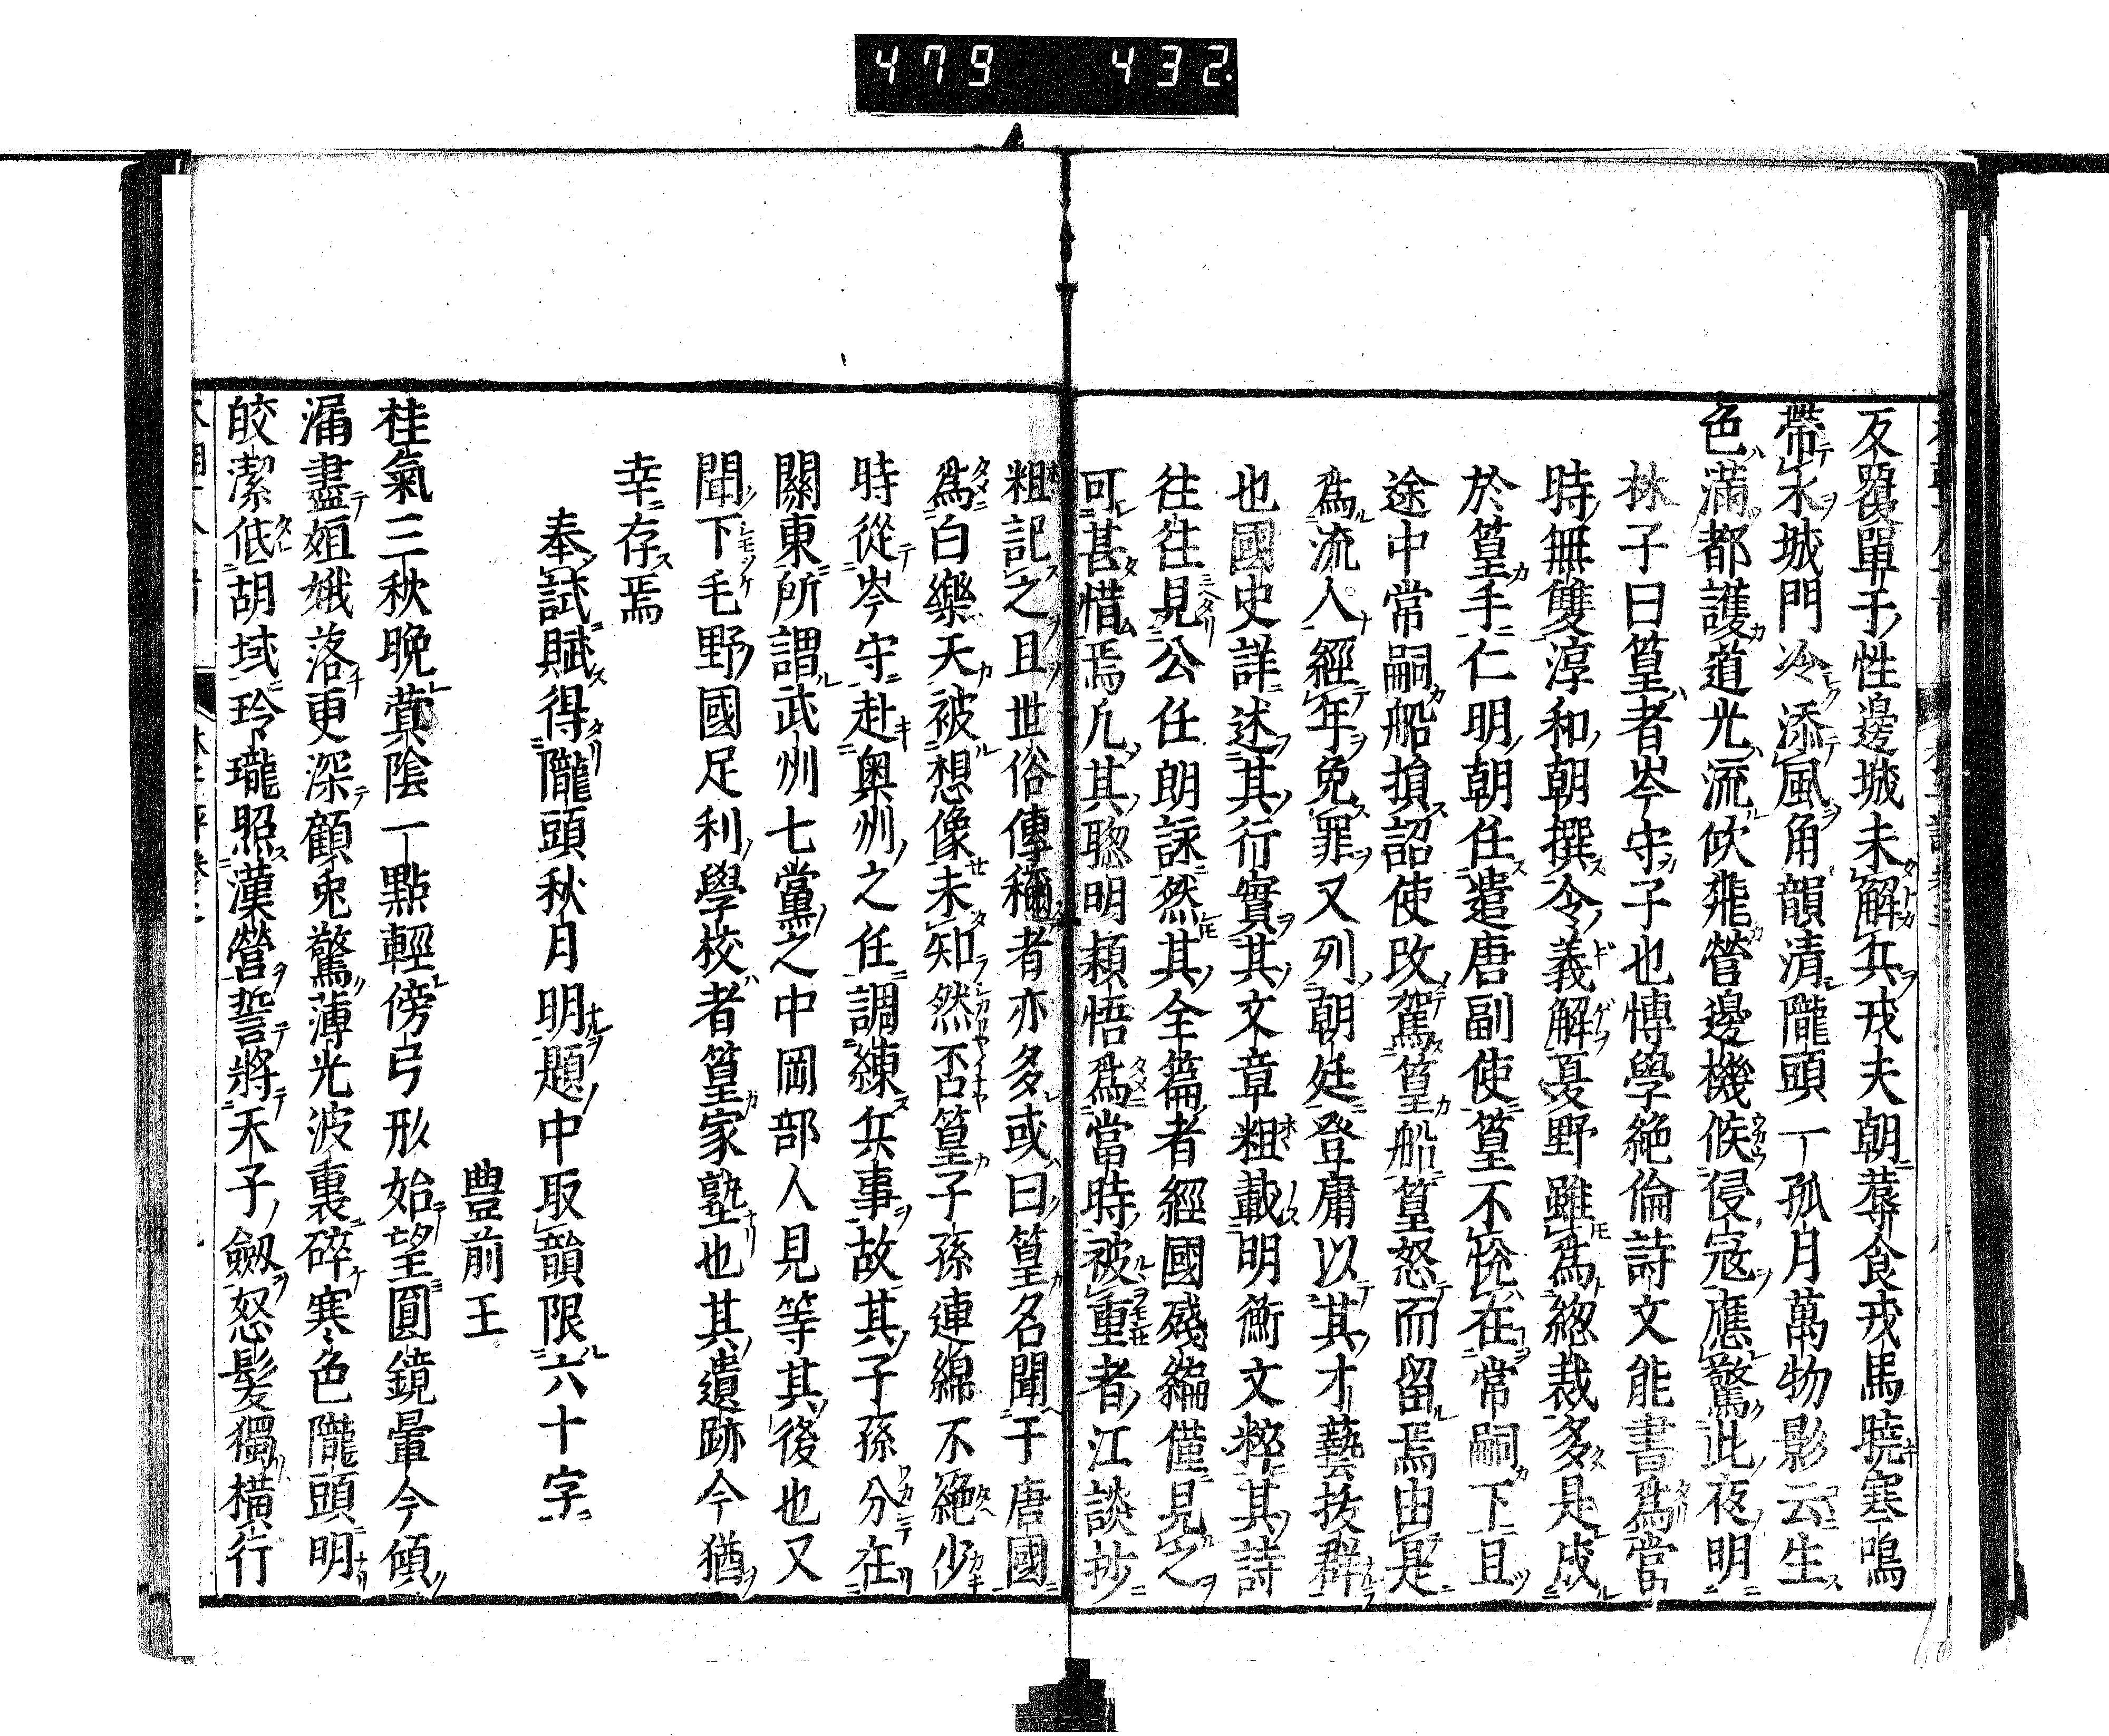 479 432
反覆單于性邊城未解兵戎夫朝蓐食戎馬曉寒鳴
帶水城門冷添風角韻清隴頭一孤月萬物影云生
色滿都護道光流佽飛營邊機候侵寇應驚此夜明
林子曰篁者岑守子也博學絶倫詩文能書爲當
時無雙淳和朝撰令義解夏野雖爲緫裁多是成
於篁手仁明朝任遣唐副使篁不悅在常嗣下且
途中常嗣船損詔使改駕篁船篁怒而留焉由是
爲流人經年免罪又列朝廷登庸以其才藝拔群
也國史詳述其行實其文章粗載明衡文粹其詩
往往見公任朗詠然其全篇者經國殘編僅見之
可甚惜焉凡其聡明穎悟爲當時被重者江談抄
粗記之且世俗傳稱者亦多或曰篁名聞于唐國
爲白樂天被想像未知然否篁子孫連綿不絶少
時從岑守赴奥州之任調練兵事故其子孫分在
關東所謂武州七黨之中岡部人見等其後也又
聞下毛野國足利學校者篁家塾也其遺跡今猶
幸存焉
奉試賦得隴頭秋月明題中取韻限六十字
豊前王
桂氣三秋晩蓂陰一點輕傍弓形始望圓鏡暈今傾
漏盡姮娥落更深顧兎驚薄光波裏碎寒色隴頭明
皎潔低胡域玲瓏照漢營誓將禾子劔怒髮獨横行